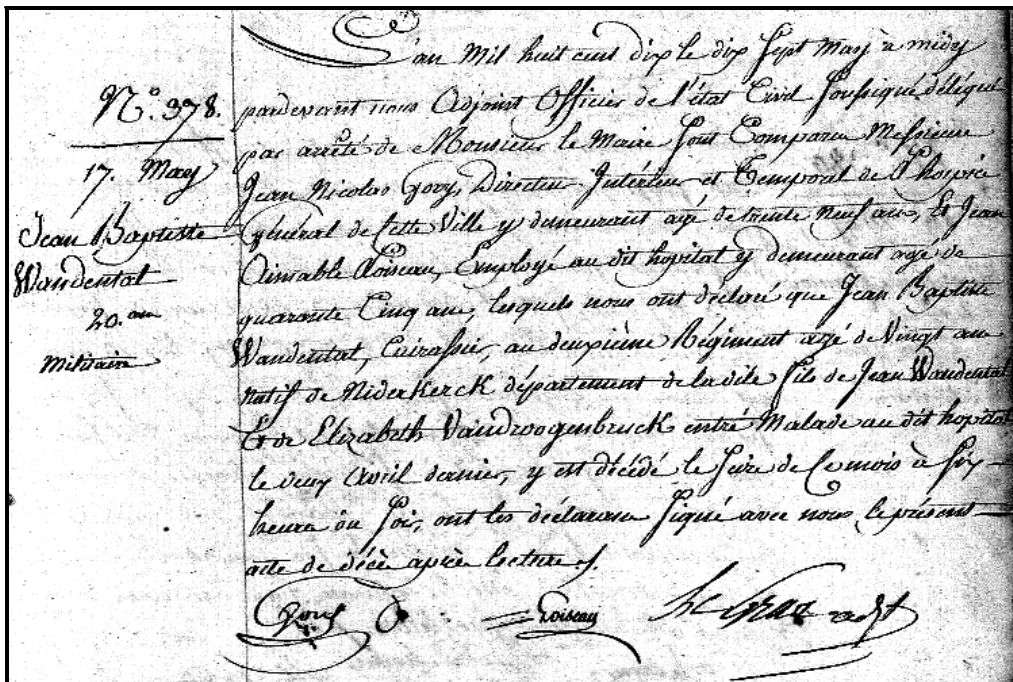 N.° 378.
17. May
Jean Baptiste
Wandentat
20. ans
militaire
L'an mil huit cent dix le dix sept may à midy
pardevant nous adjoint officier de l'état Civil soussigné délégué
par arrêté de Monsieur le Maire sont Comparu Messieurs
Jean Nicolas Gory, Directeur Intérieur et Temporal de L'hospice
Général de cette Ville y demeurant agé de trente neuf ans, Et Jean
Aimable Loiseau, Employé au dit hopital y demeurant agé de
quarante Cinq ans, lesquels nous ont déclaré que Jean Baptiste
Wandentat, Cuirassier, au deuxième Régiment agé de Vingt ans
natif de Niderkerck département de la dile fils de Jean Wandentat
Et de Elizabeth Vandwogenbruck entré Malade au dit hopital
le deux Avril dernier, y est décédé le seize de Ce mois à six
heures du soir, ont les déclarans signé avec nous le présent
acte de décès après lecture.
Loiseau
adjt